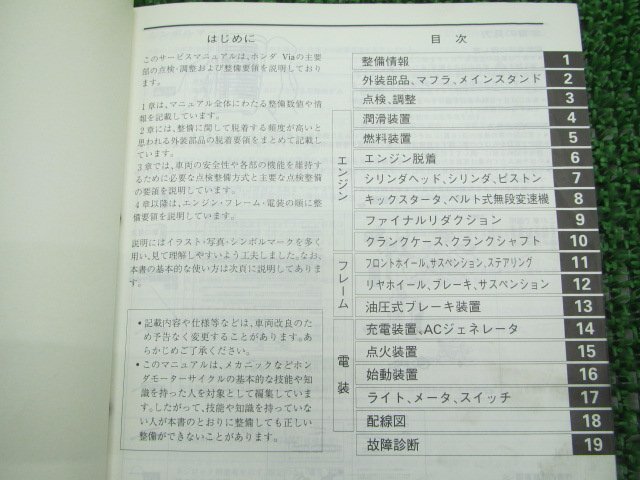 はじめに
このサービスマニュアルは、ホンダ Viaの主要
部の点検・調整および整備要領を説明しており
ます。
1章は、マニュアル全体にわたる整備数値や情
報を記載しています。
2章には、整備に関して脱着する頻度が高いと
思われる外装部品の脱着要領をまとめて記載し
ています。
3章では、車両の安全性や各部の機能を維持す
るために必要な点検整備方式と主要な点検整備
の要領を説明しています。
4章以降は、エンジン・フレーム・電装の順に整
備要領を説明しています。
説明にはイラスト・写真・シンボルマークを多く
用い、見て理解しやすいよう工夫しました。なお、
本書の基本的な使い方は次頁に説明してありま
す。
• 記載内容や仕様等などは、車両改良のた
め予告なく変更することがあります。あ
らかじめご了承ください。
• このマニュアルは、メカニックなどホン
ダモーターサイクルの基本的な技能や知
識を持った人を対象として編集していま
す。したがって、技能や知識を持っていな
い人が本書のとおりに整備しても正しい
整備ができないことがあります。
目 次
整備情報 1
外装部品、マフラ、メインスタンド 2
点検、調整 3
エンジン
潤滑装置 4
燃料装置 5
エンジン脱着 6
シリンダヘッド、シリンダ、ピストン 7
キックスタータ、ベルト式無段変速機 8
ファイナルリダクション 9
クランクケース、クランクシャフト 10
フレーム
フロントホイール、サスペンション、ステアリング 11
リヤホイール、ブレーキ、サスペンション 12
油圧式ブレーキ装置 13
電装
充電装置、ACジェネレータ 14
点火装置 15
始動装置 16
ライト、メータ、スイッチ 17
配線図 18
故障診断 19